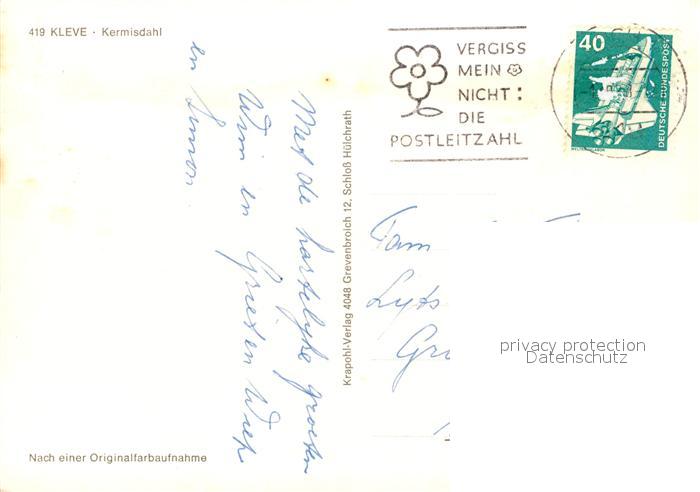 419 KLEVE · Kermisdahl
VERGISS
MEIN
NICHT:
DIE
POSTLEITZAHL
40
DEUTSCHE BUNDESPOST
Met de hartelyke groeten
Wim en Grieten Wiep
en Simon.
Krapohl-Verlag 4048 Grevenbroich 12, Schloß Hülchrath
Fam
Lyts
Gr
privacy protection
Datenschutz
Nach einer Originalfarbaufnahme